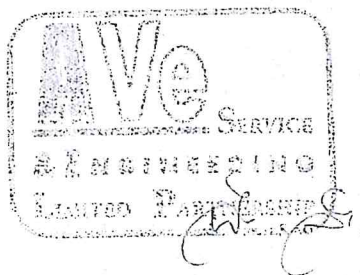 AVe
SERVICE
& ENGINEERING
LIMITED PARTNERSHIP